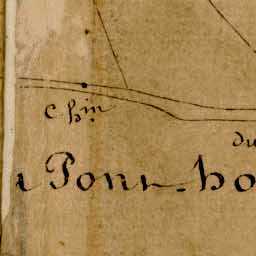 Chin
du
Pont-ho